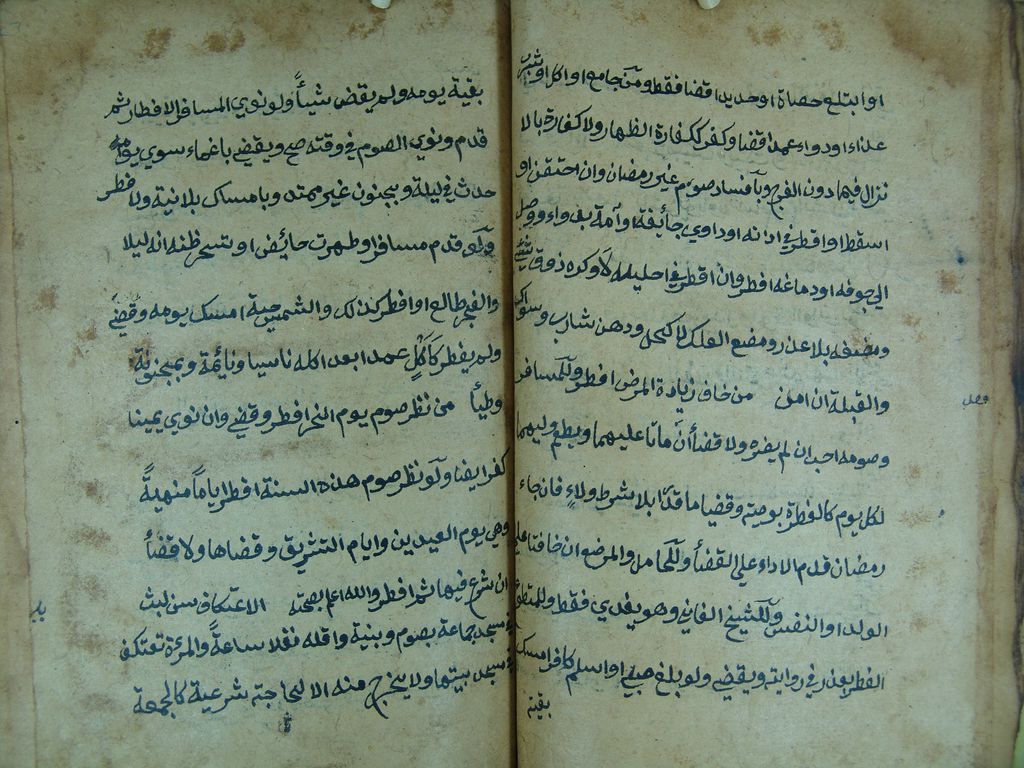 او ابتلع حصاة او حديدا قضا فقط ومن جامع او اكل او شرب
غذاء او دواء عمدا قضا وكفر ككفارة الظهار ولا كفارة بالا
نزال فيما دون الفرج وبافساد صوم غير رمضان وان احتقن او
اسقط او اقطر في اذنه او داوي جائفة او آمة بدواء ووصل
الي جوفه او دماغه افطر وان اقطر في احليله لا وكره ذوق شيئ
ومضغه بلا عذر ومضغ العلك لا كحل ودهن شارب وسواك
والقبلة ان امن من خاف زيادة المرض افطر وللمسافر
فصل
وصومه احب ان لم يضره ولا قضأ ان ماتا عليهما ويطعم وليهما
لكل يوم كالفطرة بوصية وقضيا ما قدرا بلا شرط ولاء فان جاء
رمضان قدم الاداء علي القضأ وللحامل والمرضع ان خافتا علي
الولد او النفس وللشيخ الفاني وهو يفدي فقط وللمتطوع
الفطر بعذر في رواية ويقضي ولو بلغ صبي او اسلم كافر امسك
بقية
بقية يومه ولم يقض شيئاً ولو نوي المسافر الافطار ثم
قدم ونوي الصوم في وقته صح ويقضي باغماء سوي يوم
حدث في ليلة وبجنون غير ممتد وبامساك بلا نية ولا فطر
ولو قدم مسافر او طهرت حائض او تسحر ظنه انه ليلا
والفجر طالع او افطر كذلك والشمس حية امسك يومه وقضي
ولم يفطر كاكل عمدا بعد اكله ناسيا ونائمة ومجنونة
وطيأ من نذر صوم يوم النحر افطر وقضي وان نوي يمينا
كفر ايضا ولو نذر صوم هذه السنة افطر اياماً منهيةً
وهي يوم العيدين وايام التشريق وقضاها ولا قضأ
ان شرع فيها ثم افطر والله اعلم بصحته الاعتكاف سن لبث
في مسجد جماعة بصوم وبنية واقله نفلا ساعة والمرءة تعتكف
في مسجد بيتها ولا يخرج منه الا لحاجة شرعية كالجمعة